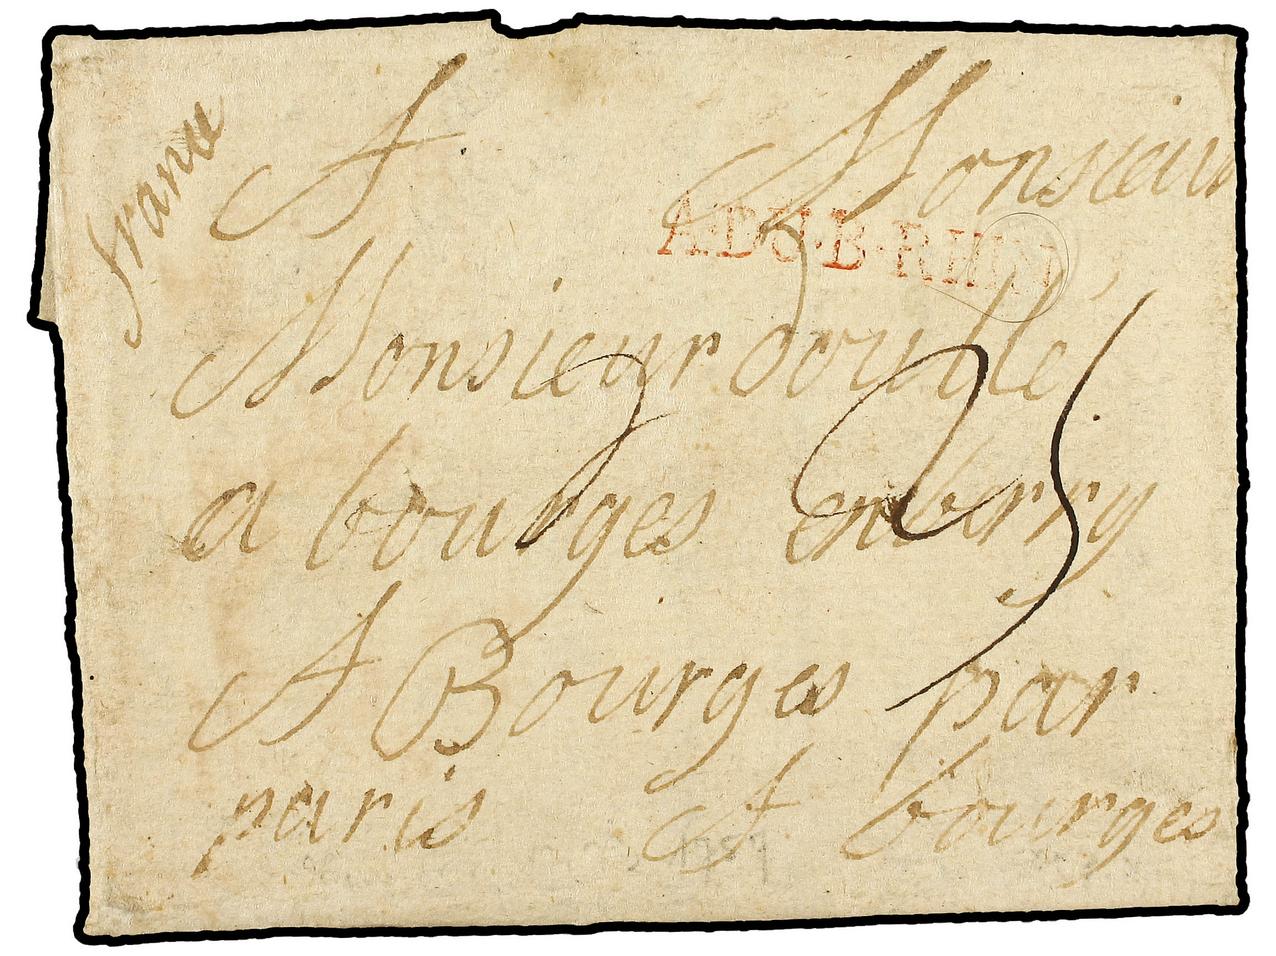 france
A Monsieur
A·DU·B·RHIN
Monsieur doullé
25
a bourges enberry
A Bourges par
paris A bourges